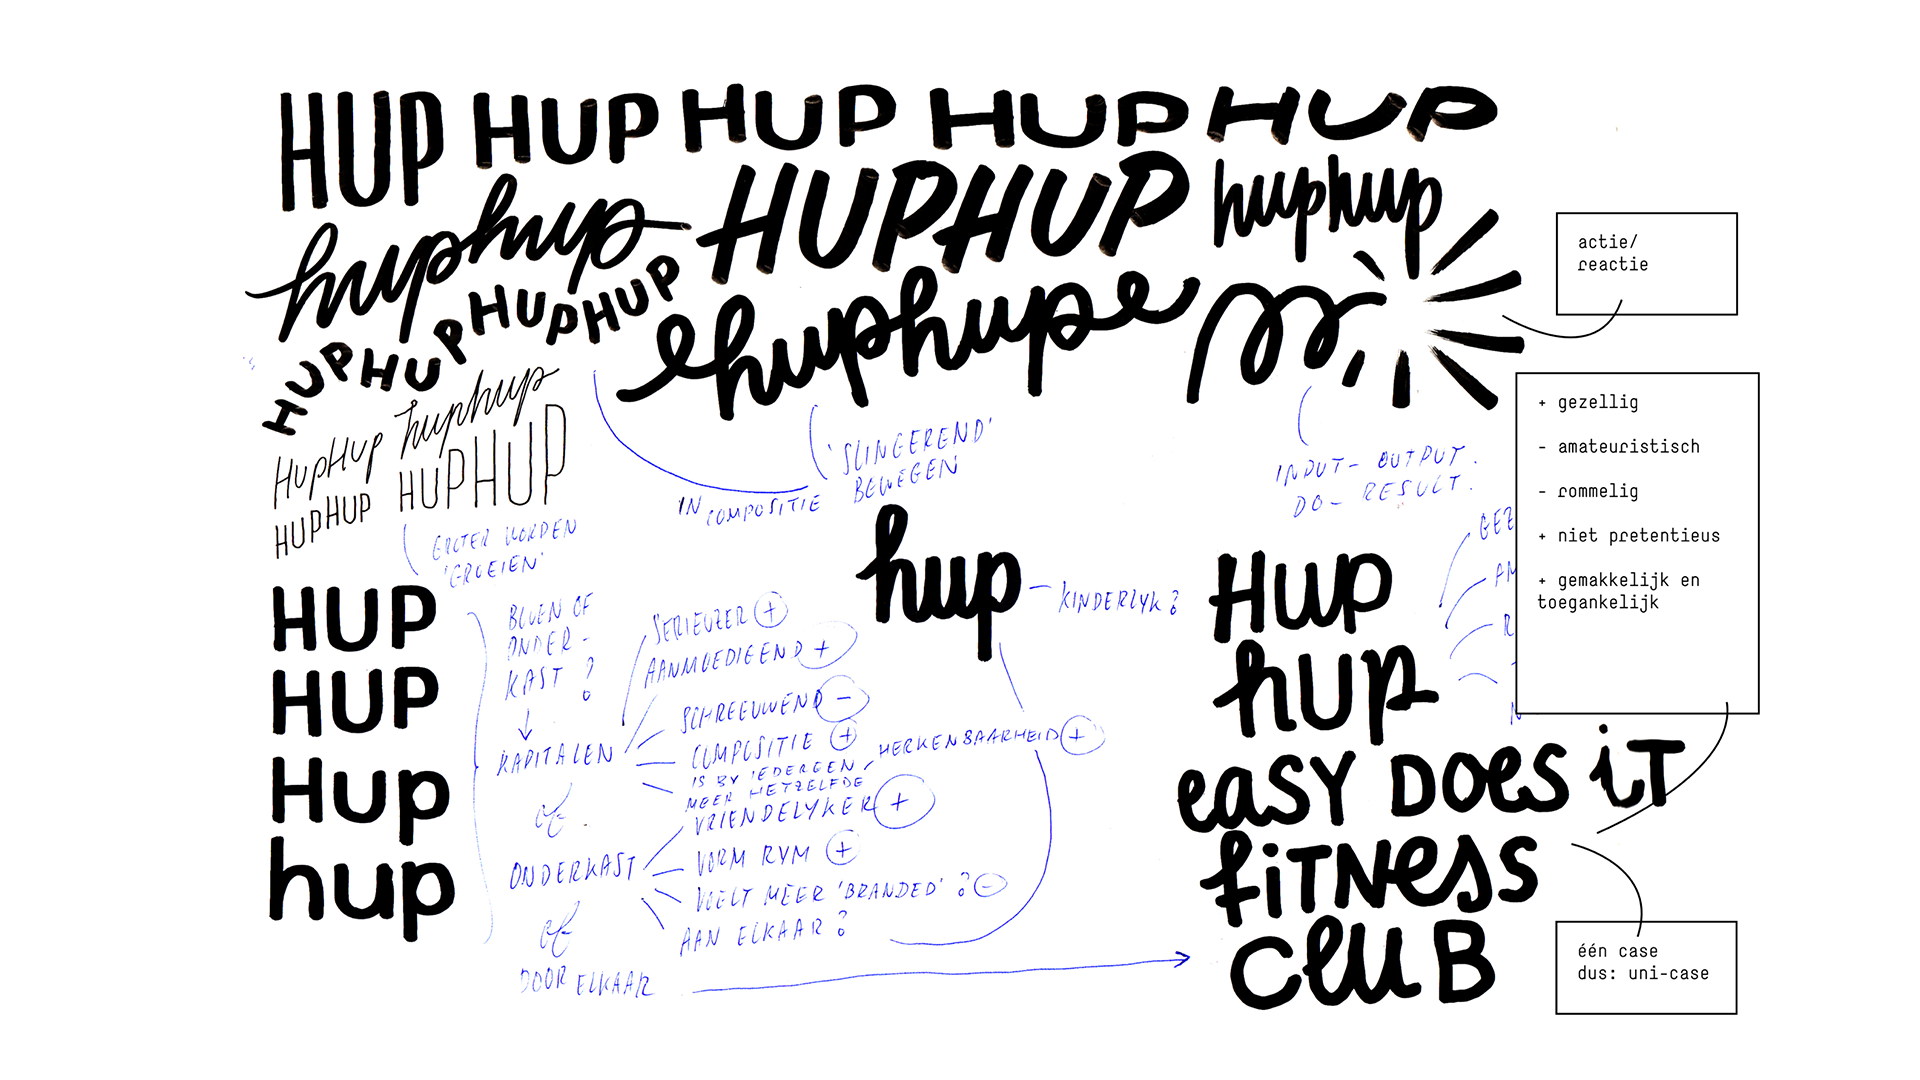 HUP HUP HUP HUP HUP
huphup HUPHUP huphup
HUPHUPHUPHUP
huphup
HupHup huphup
HUPHUP HUPHUP
actie/
reactie
+ gezellig
- amateuristisch
- rommelig
+ niet pretentieus
+ gemakkelijk en
toegankelijk
'SLINGEREND'
BEWEGEN
IN
COMPOSITIE
INPUT - OUTPUT.
DO - RESULT.
GROTER WORDEN
'GROEIEN'
HUP
HUP
Hup
hup
BOVEN OF
ONDER -
KAST ?
KAPITALEN
of
ONDERKAST
of
DOOR ELKAAR
SERIEUZER +
AANMOEDIGEND +
SCHREEUWEND -
COMPOSITIE +
IS BY IEDEREEN
MEER HETZELFDE
HERKENBAARHEID +
VRIENDELYKER +
VORM RYM +
VOELT MEER 'BRANDED' ? -
AAN ELKAAR ?
hup - KINDERLYK ?
GEZ
AM
R
N
HUP
hUp
eaSY DOes iT
fiTNess
CluB
één case
dus: uni-case